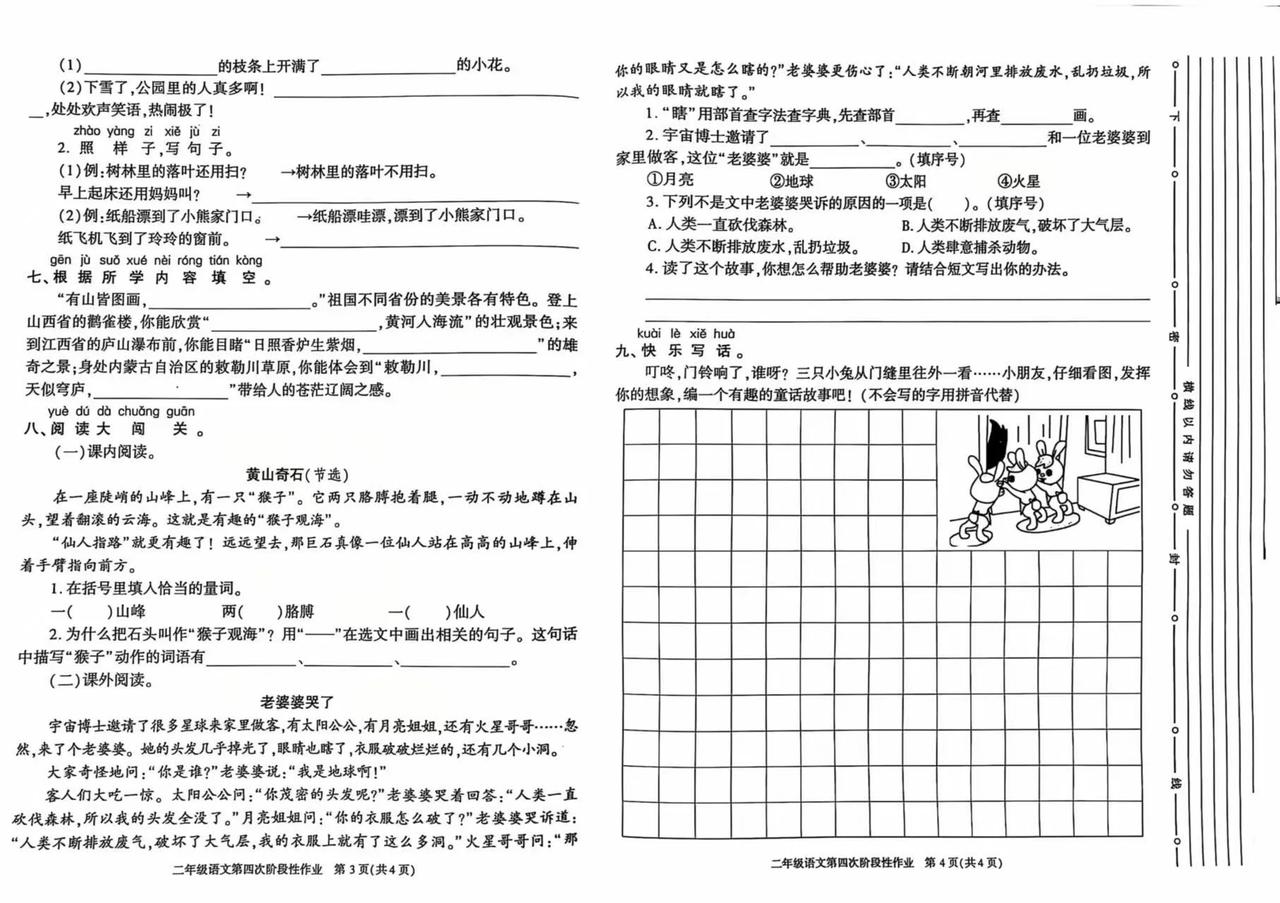 (1)____________的枝条上开满了____________的小花。
(2)下雪了,公园里的人真多啊! ____________________________
__,处处欢声笑语,热闹极了!
zhào yàng zi xiě jù zi
2. 照 样 子,写 句 子。
(1)例:树林里的落叶还用扫? →树林里的落叶不用扫。
早上起床还用妈妈叫? →____________________________
(2)例:纸船漂到了小熊家门口。 →纸船漂哇漂,漂到了小熊家门口。
纸飞机飞到了玲玲的窗前。 →____________________________
gēn jù suǒ xué nèi róng tián kòng
七、根 据 所 学 内 容 填 空 。
“有山皆图画,______________。”祖国不同省份的美景各有特色。登上
山西省的鹳雀楼,你能欣赏“______________,黄河入海流”的壮观景色;来
到江西省的庐山瀑布前,你能目睹“日照香炉生紫烟,______________”的雄
奇之景;身处内蒙古自治区的敕勒川草原,你能体会到“敕勒川,____________,
天似穹庐,____________”带给人的苍茫辽阔之感。
yuè dú dà chuǎng guān
八、阅 读 大 闯 关 。
(一)课内阅读。
黄山奇石(节选)
在一座陡峭的山峰上,有一只“猴子”。它两只胳膊抱着腿,一动不动地蹲在山
头,望着翻滚的云海。这就是有趣的“猴子观海”。
“仙人指路”就更有趣了! 远远望去,那巨石真像一位仙人站在高高的山峰上,伸
着手臂指向前方。
1. 在括号里填入恰当的量词。
一( )山峰 两( )胳膊 一( )仙人
2. 为什么把石头叫作“猴子观海”? 用“——”在选文中画出相关的句子。这句话
中描写“猴子”动作的词语有________、________、__________。
(二)课外阅读。
老婆婆哭了
宇宙博士邀请了很多星球来家里做客,有太阳公公,有月亮姐姐,还有火星哥哥……忽
然,来了个老婆婆。她的头发几乎掉光了,眼睛也瞎了,衣服破破烂烂的,还有几个小洞。
大家奇怪地问:“你是谁?”老婆婆说:“我是地球啊!”
客人们大吃一惊。太阳公公问:“你茂密的头发呢?”老婆婆哭着回答:“人类一直
砍伐森林,所以我的头发全没了。”月亮姐姐问:“你的衣服怎么破了?”老婆婆哭诉道:
“人类不断排放废气,破坏了大气层,我的衣服上就有了这么多洞。”火星哥哥问:“那
二年级语文第四次阶段性作业 第 3 页(共 4 页)
你的眼睛又是怎么瞎的?”老婆婆更伤心了:“人类不断朝河里排放废水,乱扔垃圾,所
以我的眼睛就瞎了。”
1. “瞎”用部首查字法查字典,先查部首______,再查______画。
2. 宇宙博士邀请了________、________、________和一位老婆婆到
家里做客,这位“老婆婆”就是________。(填序号)
①月亮 ②地球 ③太阳 ④火星
3. 下列不是文中老婆婆哭诉的原因的一项是( )。(填序号)
A. 人类一直砍伐森林。 B. 人类不断排放废气,破坏了大气层。
C. 人类不断排放废水,乱扔垃圾。 D. 人类肆意捕杀动物。
4. 读了这个故事,你想怎么帮助老婆婆? 请结合短文写出你的办法。
kuài lè xiě huà
九、快 乐 写 话 。
叮咚,门铃响了,谁呀? 三只小兔从门缝里往外一看……小朋友,仔细看图,发挥
你的想象,编一个有趣的童话故事吧! (不会写的字用拼音代替)
二年级语文第四次阶段性作业 第 4 页(共 4 页)
横线以内请勿答题
下 密 封 线